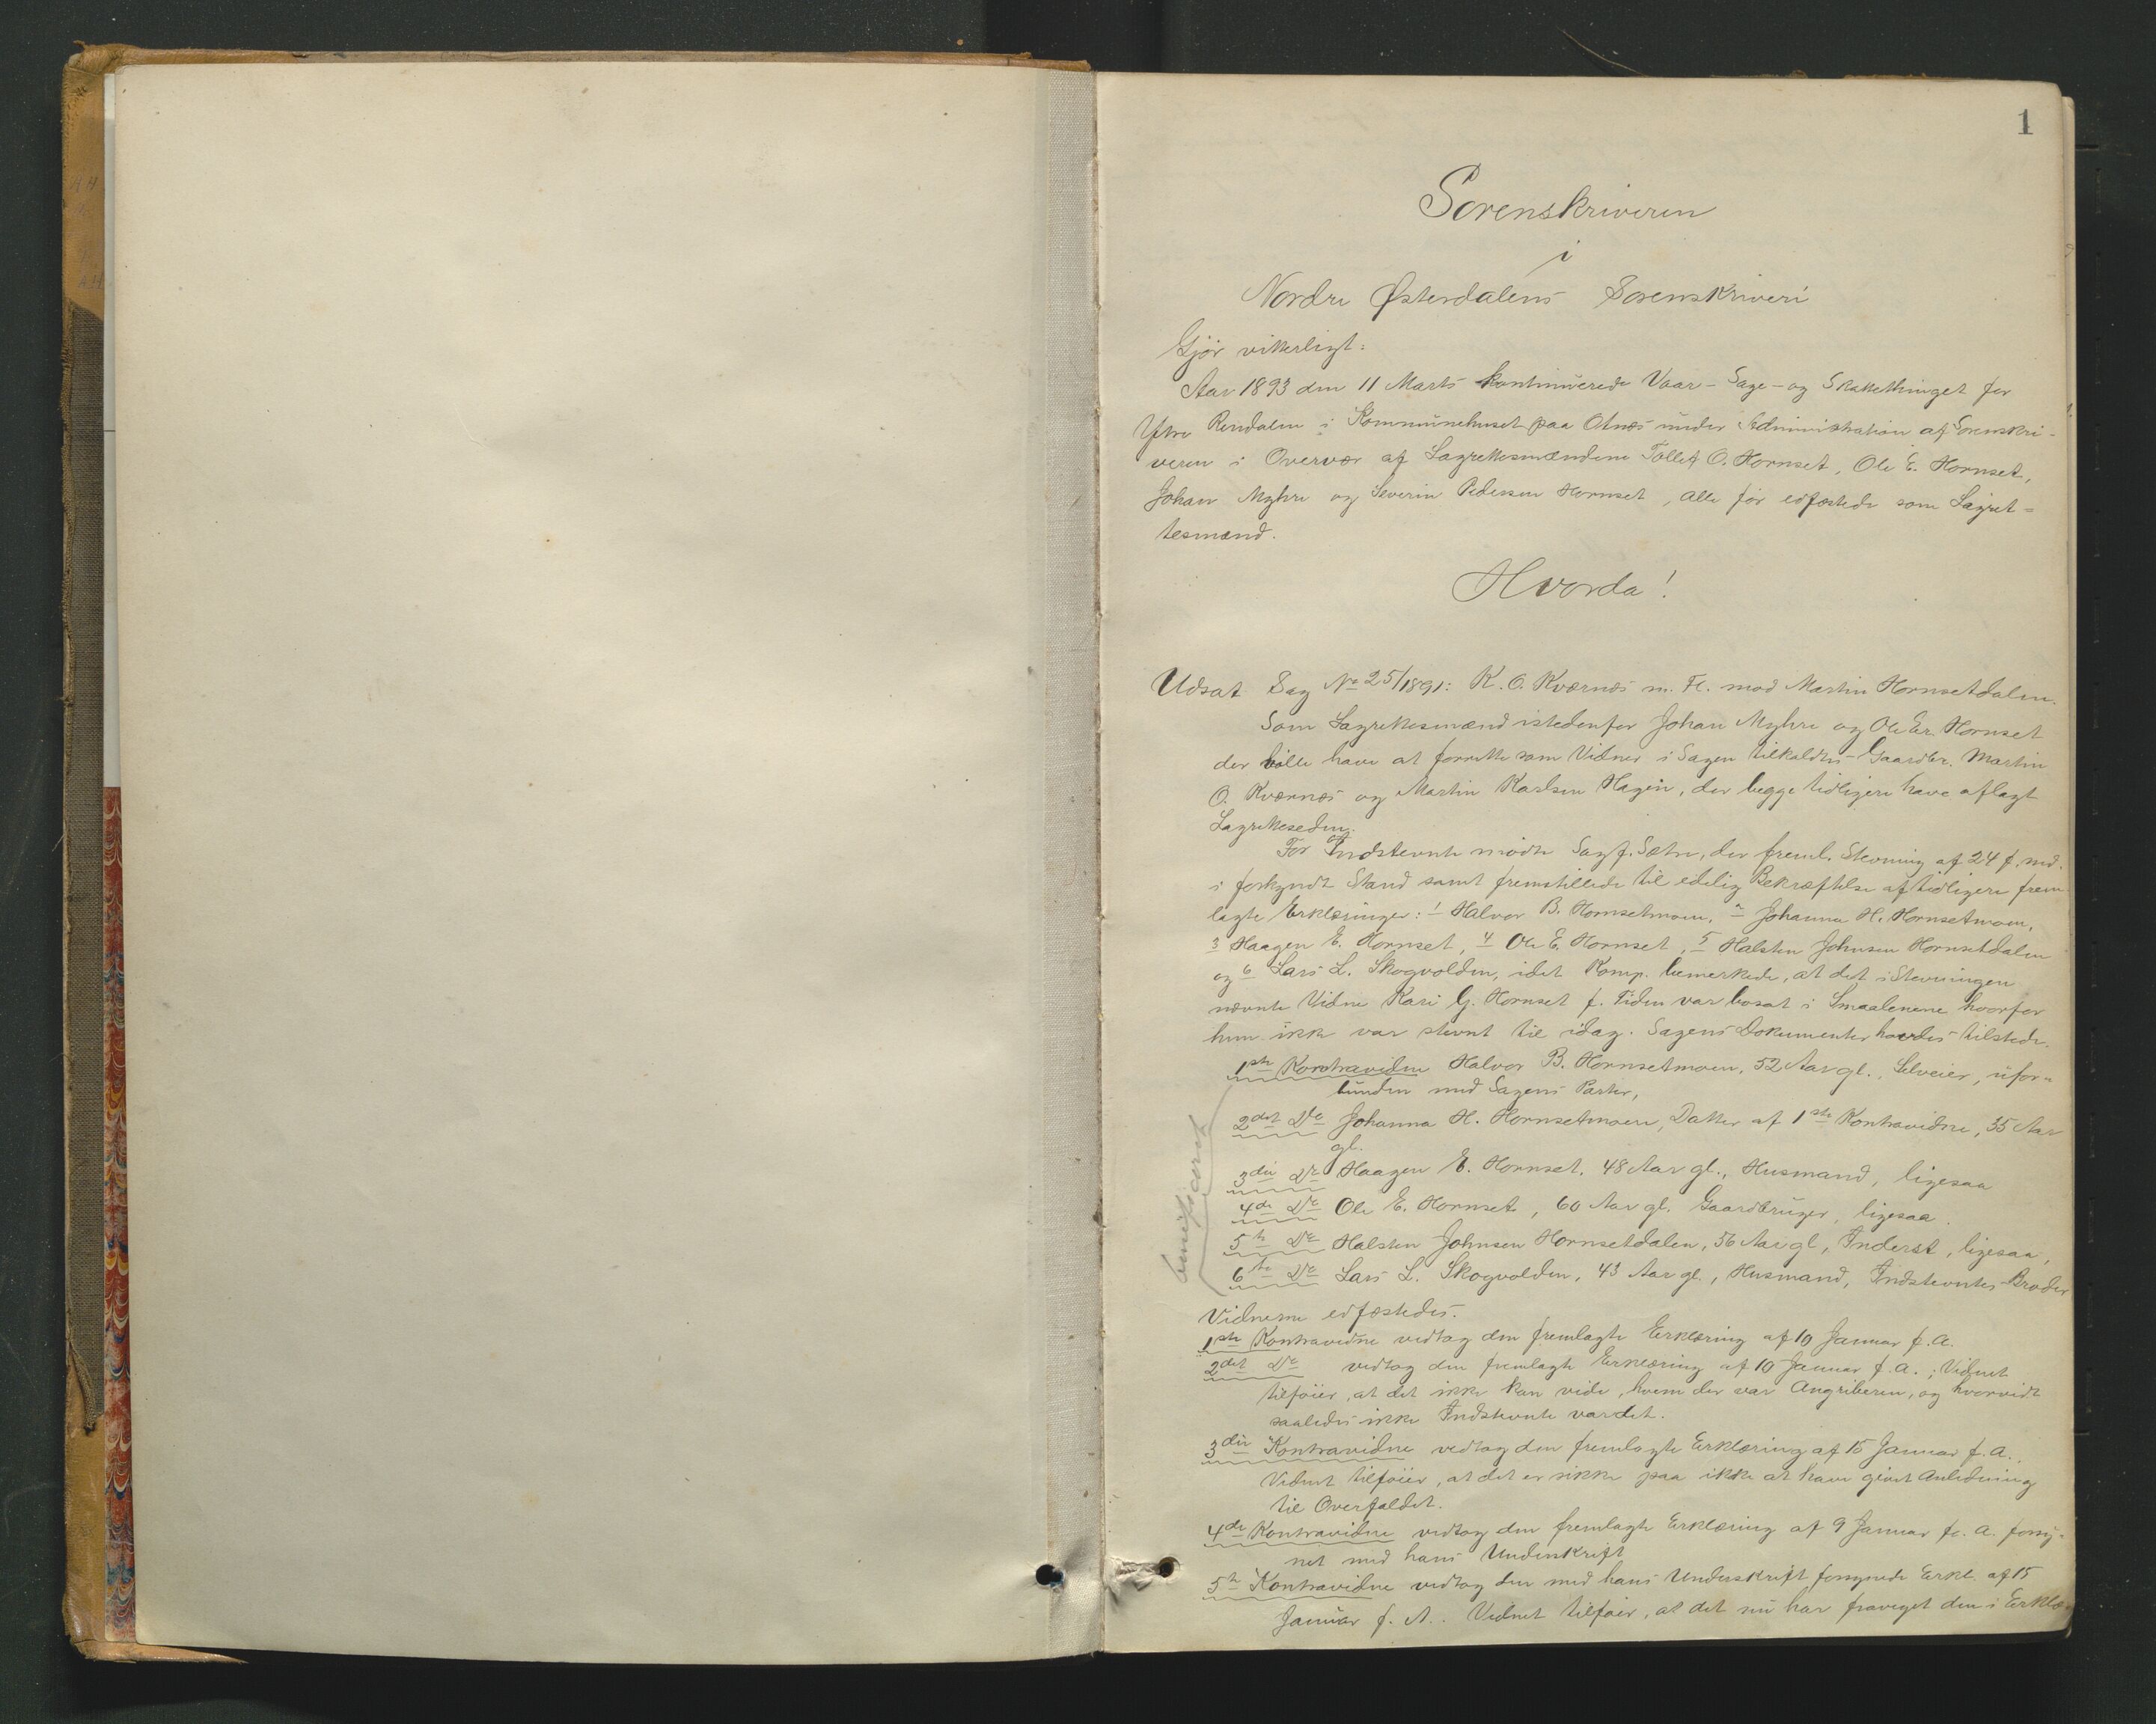 1
Sorenskriveren
i
Nordre Østerdalens Sorenskriveri
Gjør vitterligt:
Aar 1893 den 11 Marts kontinuerede Vaar- Sage- og Skattethinget for
Ytre Rendalen i Kommunehuset paa Otnes under Administration af Sorenskri-
veren i Overvær af Lagrettesmændene Tollef O. Hornset, Ole E. Hornset,
Johan Myhre og Severin Pedersen Hornset, alle før edfæstede som Lagret=
tesmænd.
Hvorda!
Udsat Sag No 25/1891: K. O. Kværnes m. Fl. mod Martin Hornsetdalen.
Som Lagrettesmænd istedenfor Johan Myhre og Ole Er. Hornset
der ville have at forrette som Vidner i Sagen tilkaldtes Gaardbr. Martin
O. Kværnes og Martin Karlsen Hagen, der begge tidligere have aflagt
Lagretteseden.
For Indstevnte mødte Sagf. Sætre, der freml. Stevning af 24 f. md.
i forkyndt Stand samt fremstillede til edelig Bekræftelse af tidligere frem
lagte Erklæringer: 1 Halvor B. Hornsetmoen, 2 Johanna H. Hornsetmoen,
3 Haagen E. Hornset, 4 Ole E. Hornset, 5 Halsten Johnsen Hornsetdalen
og 6 Lars L. Skogvolden, idet Komp. bemerkede, at det i Stevningen
nævnte Vidne Kari G. Hornset f. Tiden var bosat i Smaalenene hvorfor
hun ikke var stevnt til idag. Sagens Dokumenter havdes tilstede.
1ste Kontravidne Halvor B. Hornsetmoen, 52 Aar gl., Selveier, ufor-
bunden med Sagens Parter,
2det Do Johanna H. Hornsetmoen, Datter af 1ste Kontravidne, 35 Aar
gl.
3die Do Haagen E. Hornset, 48 Aar gl., Husmand, ligesaa
4de Do Ole E. Hornset, 60 Aar gl. Gaardbruger, ligesaa.
5te Do Halsten Johnsen Hornsetdalen, 56 Aar gl, Inderst, ligesaa,
6te Do Lars L. Skogvolden, 43 Aar gl., Husmand, Indstevntes Broder
Vidnerne edfæstedes.
1ste Kontravidne vedtog den fremlagte Erklæring af 10 Januar f. A.
2det Do vedtog den fremlagte Erklæring af 10 Januar f. A.; Vidnet
tilføier, at det ikke kan vide, hvem der var Angriberen, og hvorvidt
saaledes ikke Indstevnte var det.
3die Kontravidne vedtog den fremlagte Erklæring af 15 Januar f. A.,
Vidnet tilføier, at det er sikker paa ikke at have givet Anledning
til Overfaldet.
4de Kontravidne vedtog den fremlagte Erklæring af 9 Januar f. A. forsy-
net med hans Underskrift
5te Kontravidne vedtog den med hans Underskrift forsynede Erkl. af 15
Januar f. A.. Vidnet tilføier, at det nu har fraveget den i Erklæ